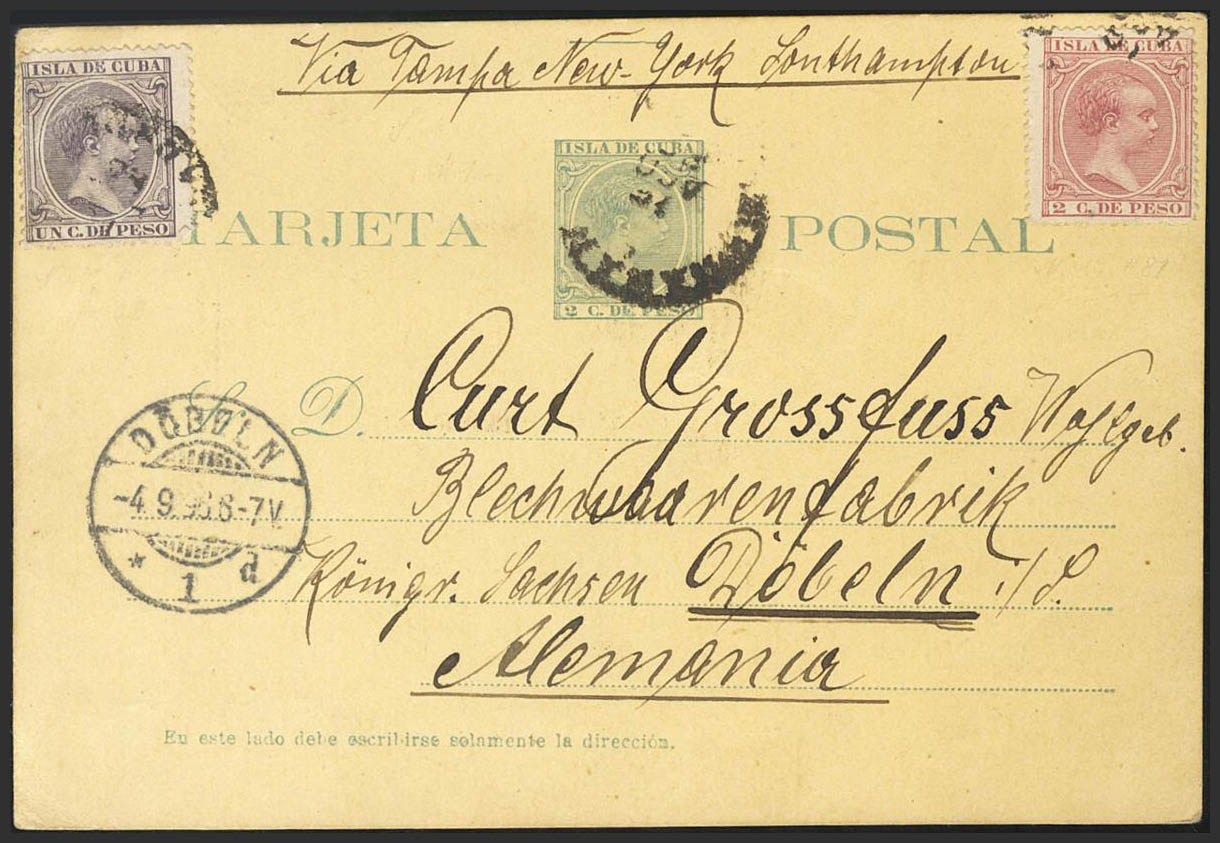 Via Tampa New-York Southampton
ISLA DE CUBA
UN C. DE PESO
ISLA DE CUBA
2 C. DE PESO
ISLA DE CUBA
2 C. DE PESO
TARJETA POSTAL
S. D. Curt Grossfuss Wohlgeb.
Blechwaarenfabrik
Königr. Sachsen Döbeln i/S.
Alemania
DÖBELN
-4.9.96 6-7V
* 1 d
En este lado debe escribirse solamente la dirección.